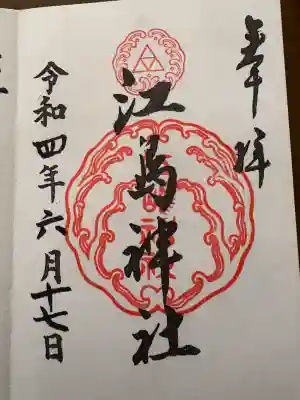 奉拝
江島神社
令和四年六月十七日